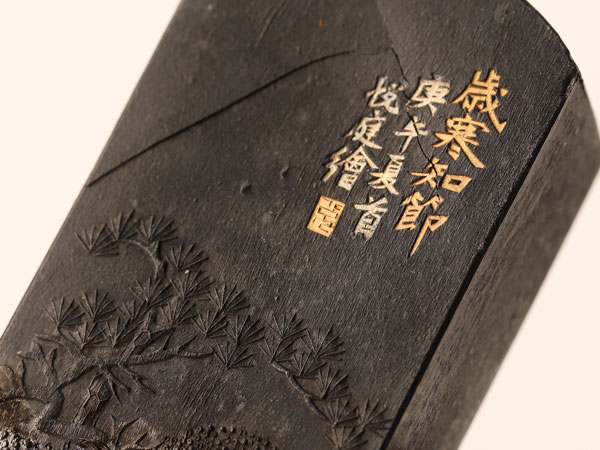 歲寒知節
庚午夏首
悅庭繪